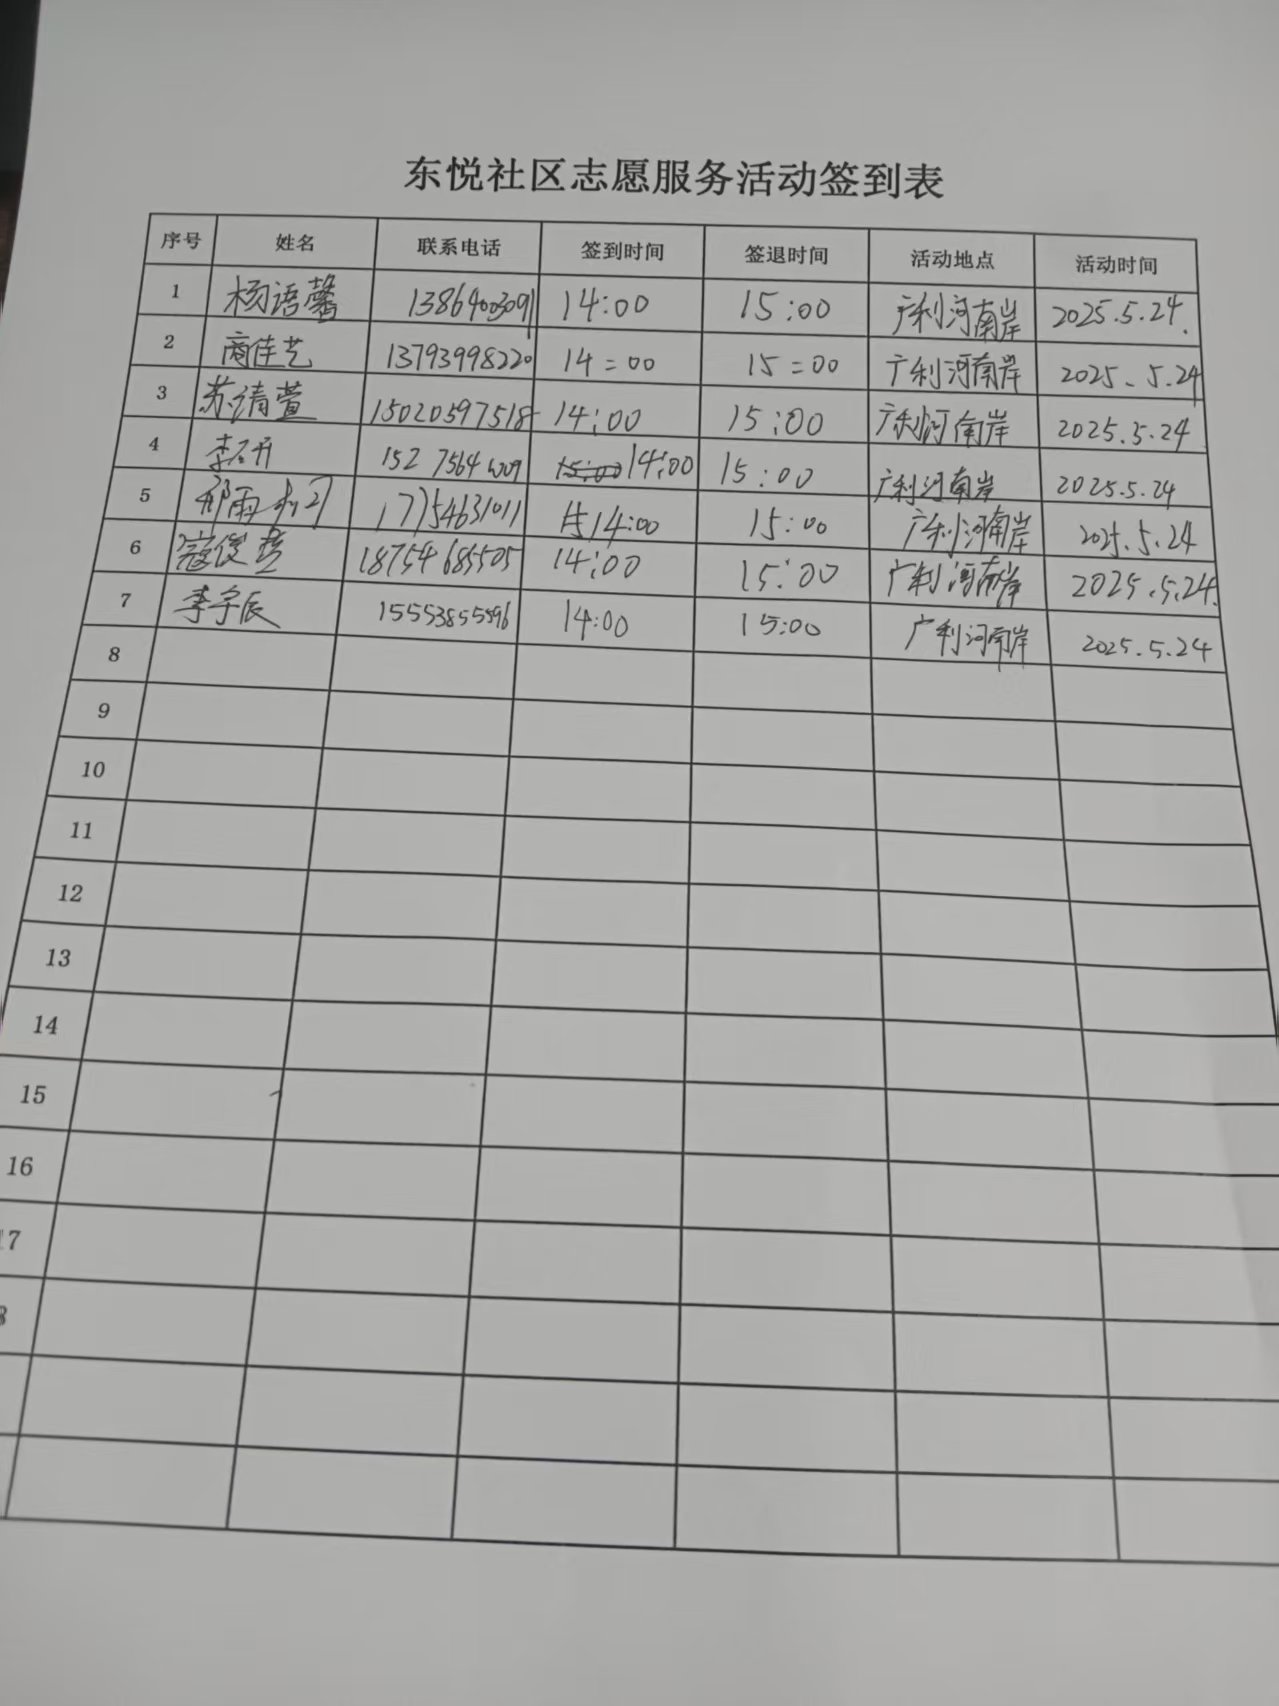 东悦社区志愿服务活动签到表
序号 姓名 联系电话 签到时间 签退时间 活动地点 活动时间
1 杨语馨 13864003091 14:00 15:00 广利河南岸 2025.5.24.
2 商佳艺 13793998220 14:00 15:00 广利河南岸 2025.5.24
3 苏靖萱 15020597518 14:00 15:00 广利河南岸 2025.5.24
4 李石开 152 7564 15:00 14:00 15:00 广利河南岸 2025.5.24
5 雨 17754631011 14:00 15:00 广利河南岸 2025.5.24
6 寇俊 18754685505 14:00 15:00 广利河南岸 2025.5.24.
7 李宇辰 15553855596 14:00 15:00 广利河南岸 2025.5.24
8
9
10
11
12
13
14
15
16
17